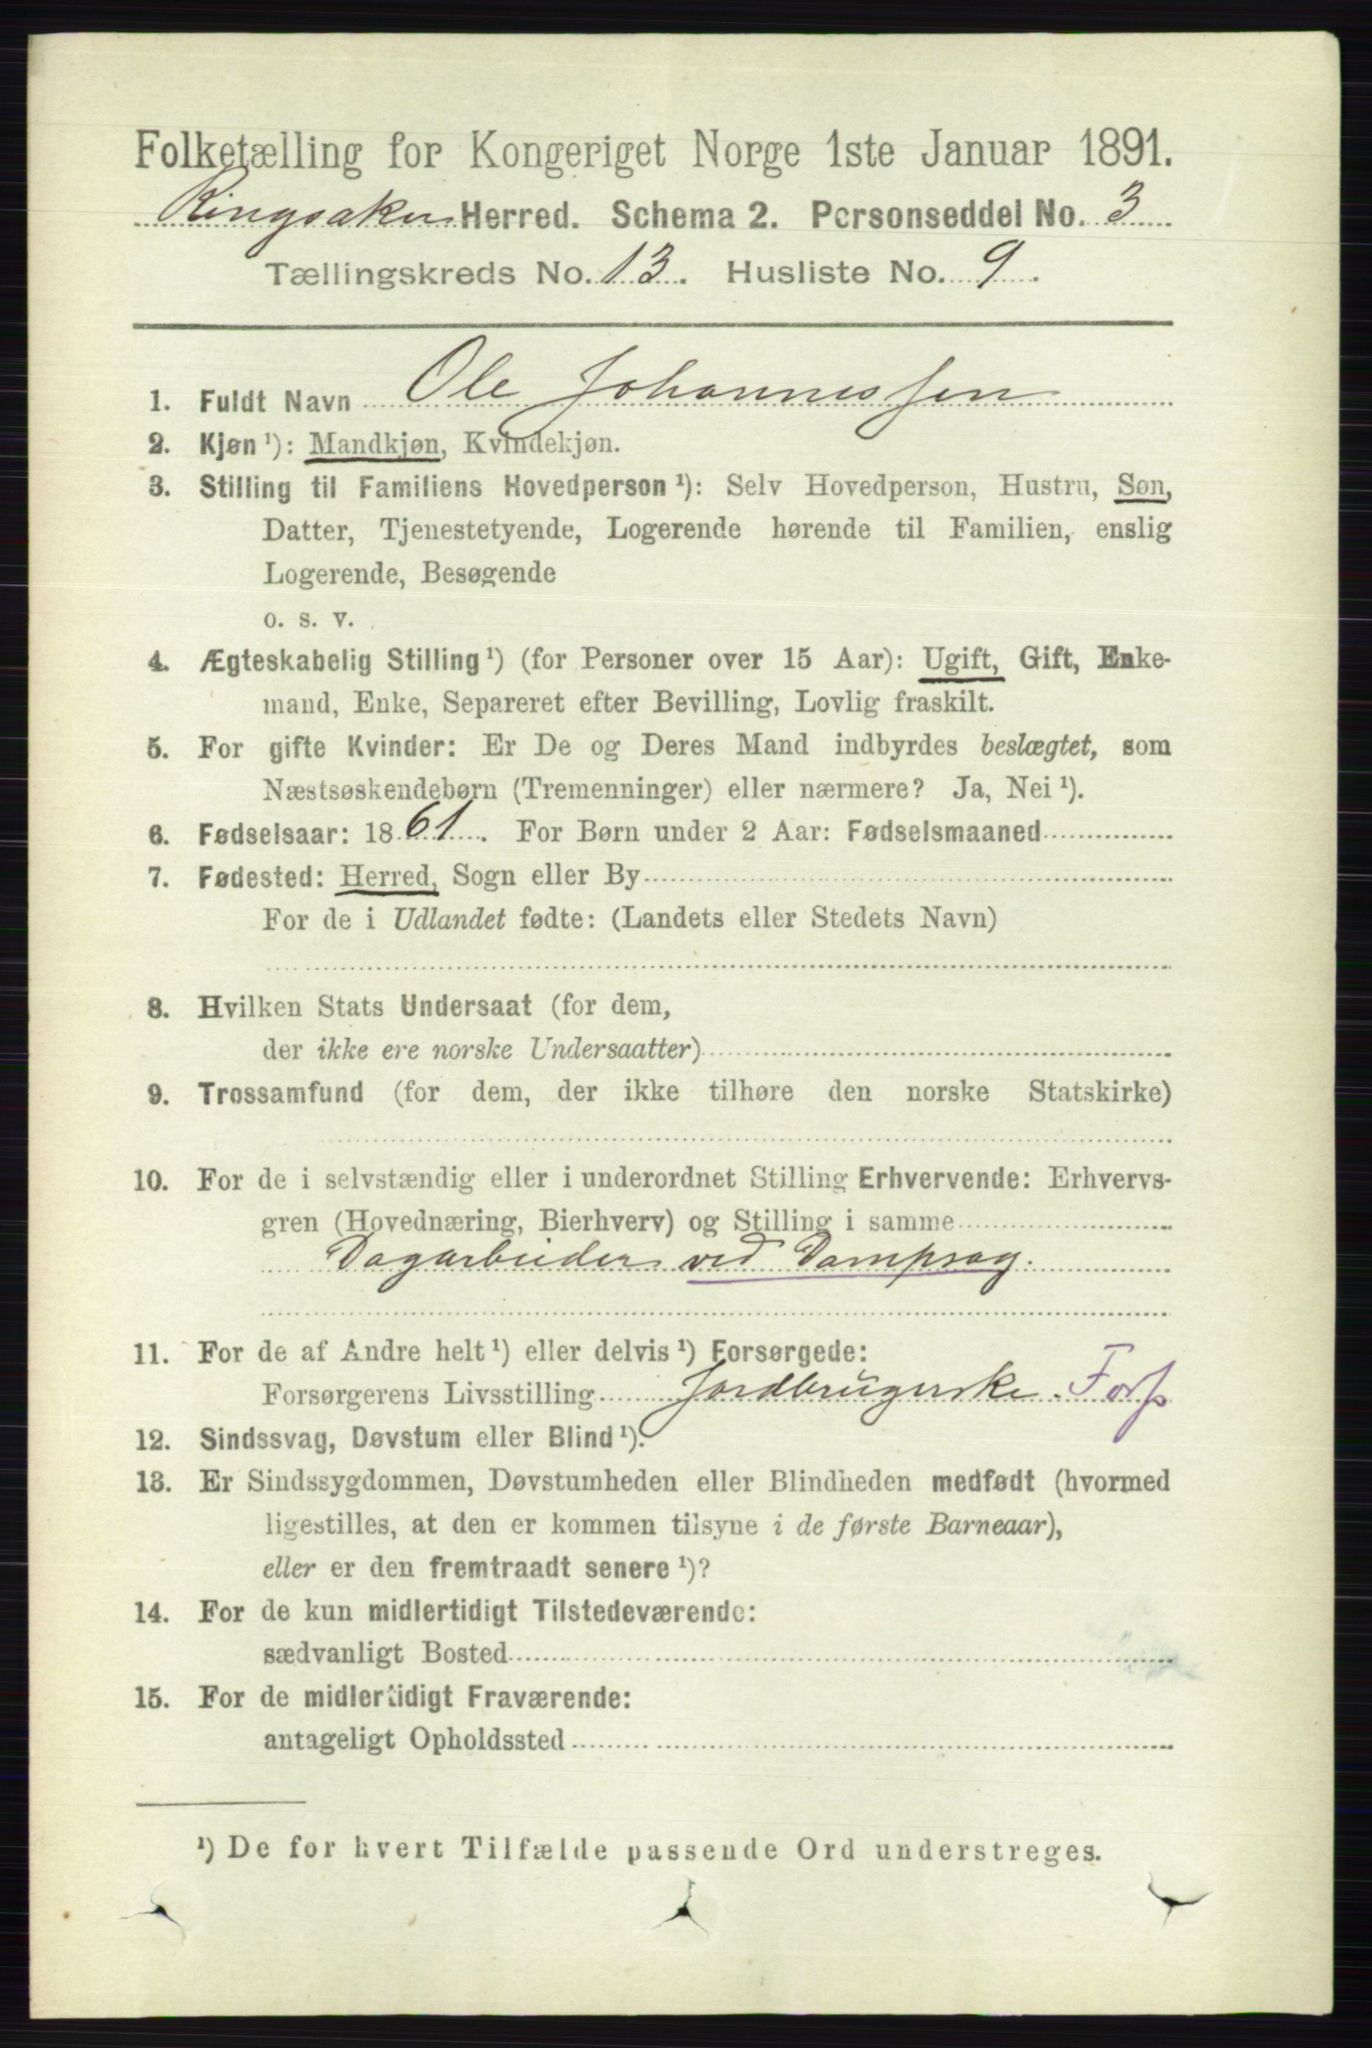 Folketælling for Kongeriget Norge 1ste Januar 1891.
Ringsaker Herred. Schema 2. Personseddel No. 3
Tællingskreds No. 13. Husliste No. 9.
1. Fuldt Navn Ole Johannessen
2. Kjøn ¹): Mandkjøn, Kvindekjøn.
3. Stilling til Familiens Hovedperson ¹): Selv Hovedperson, Hustru, Søn,
Datter, Tjenestetyende, Logerende hørende til Familien, enslig
Logerende, Besøgende
o. s. v.
4. Ægteskabelig Stilling ¹) (for Personer over 15 Aar): Ugift, Gift, Enke-
mand, Enke, Separeret efter Bevilling, Lovlig fraskilt.
5. For gifte Kvinder: Er De og Deres Mand indbyrdes beslægtet, som
Næstsøskendebørn (Tremenninger) eller nærmere? Ja, Nei ¹).
6. Fødselsaar: 1861. For Børn under 2 Aar: Fødselsmaaned
7. Fødested: Herred, Sogn eller By
For de i Udlandet fødte: (Landets eller Stedets Navn)
8. Hvilken Stats Undersaat (for dem,
der ikke ere norske Undersaatter)
9. Trossamfund (for dem, der ikke tilhøre den norske Statskirke)
10. For de i selvstændig eller i underordnet Stilling Erhvervende: Erhvervs-
gren (Hovednæring, Bierhverv) og Stilling i samme
Dagarbeider ved Dampsag.
11. For de af Andre helt ¹) eller delvis ¹) Forsørgede:
Forsørgerens Livsstilling Jordbrugerske. Fors
12. Sindssvag, Døvstum eller Blind ¹).
13. Er Sindssygdommen, Døvstumheden eller Blindheden medfødt (hvormed
ligestilles, at den er kommen tilsyne i de første Barneaar),
eller er den fremtraadt senere ¹)?
14. For de kun midlertidigt Tilstedeværende:
sædvanligt Bosted
15. For de midlertidigt Fraværende:
antageligt Opholdssted
¹) De for hvert Tilfælde passende Ord understreges.